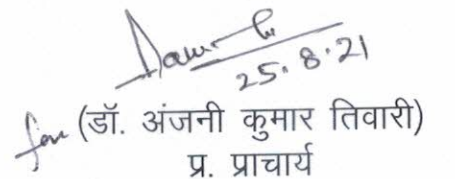 25.8.21
for (डॉ. अंजनी कुमार तिवारी)
प्र. प्राचार्य